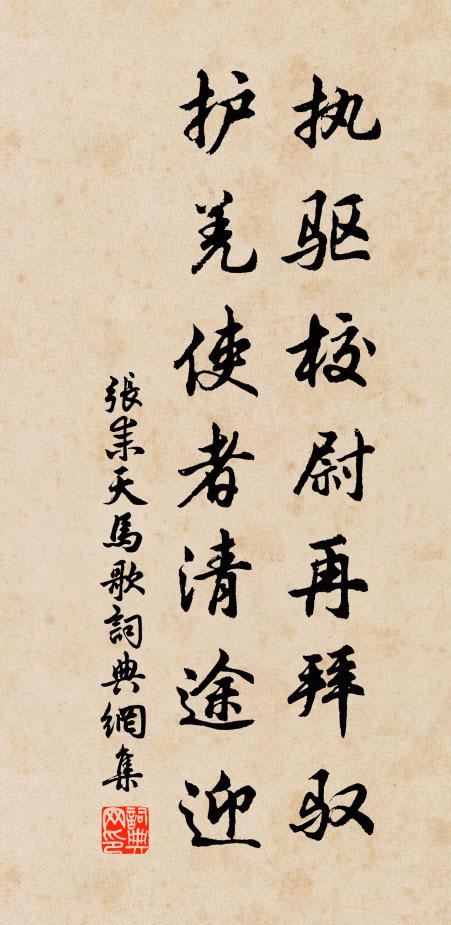 执驱校尉再拜驭
护羌使者清途迎
張耒天馬歌詞典網集
詞典
网印